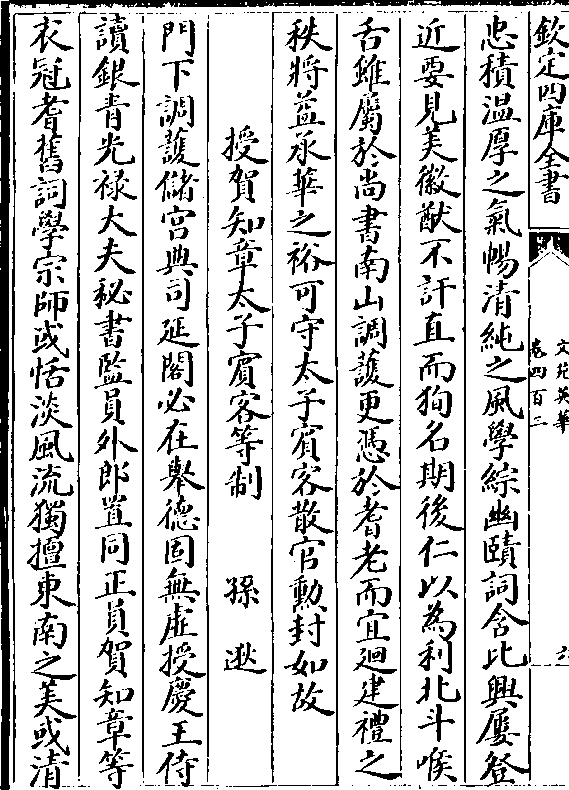 欽定四庫全書
文苑英華
卷四百二
忠積溫厚之氣暢清純之風學綜幽賾詞含比興屢登
近要見美徽猷不訐直而狥名期後仁以為利北斗喉
舌雖屬於尚書南山調護更憑於耆老而宜廻建禮之
秩將益承華之裕可守太子賓客散官勲封如故
授賀知章太子賓客等制　孫逖
門下調護儲宫典司延閣必在舉德固無虚授慶王侍
讀銀青光禄大夫秘書監員外郎置同正員賀知章等
衣冠耆舊詞學宗師或恬淡風流獨擅東南之美或清